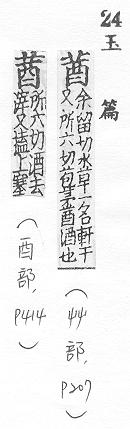 24 玉篇
莤 余留切水草一名軒于
又所六切包茅莤酒也
(艸部, P207)
莤 所六切酒去
滓又榼上塞
(酉部, P414)